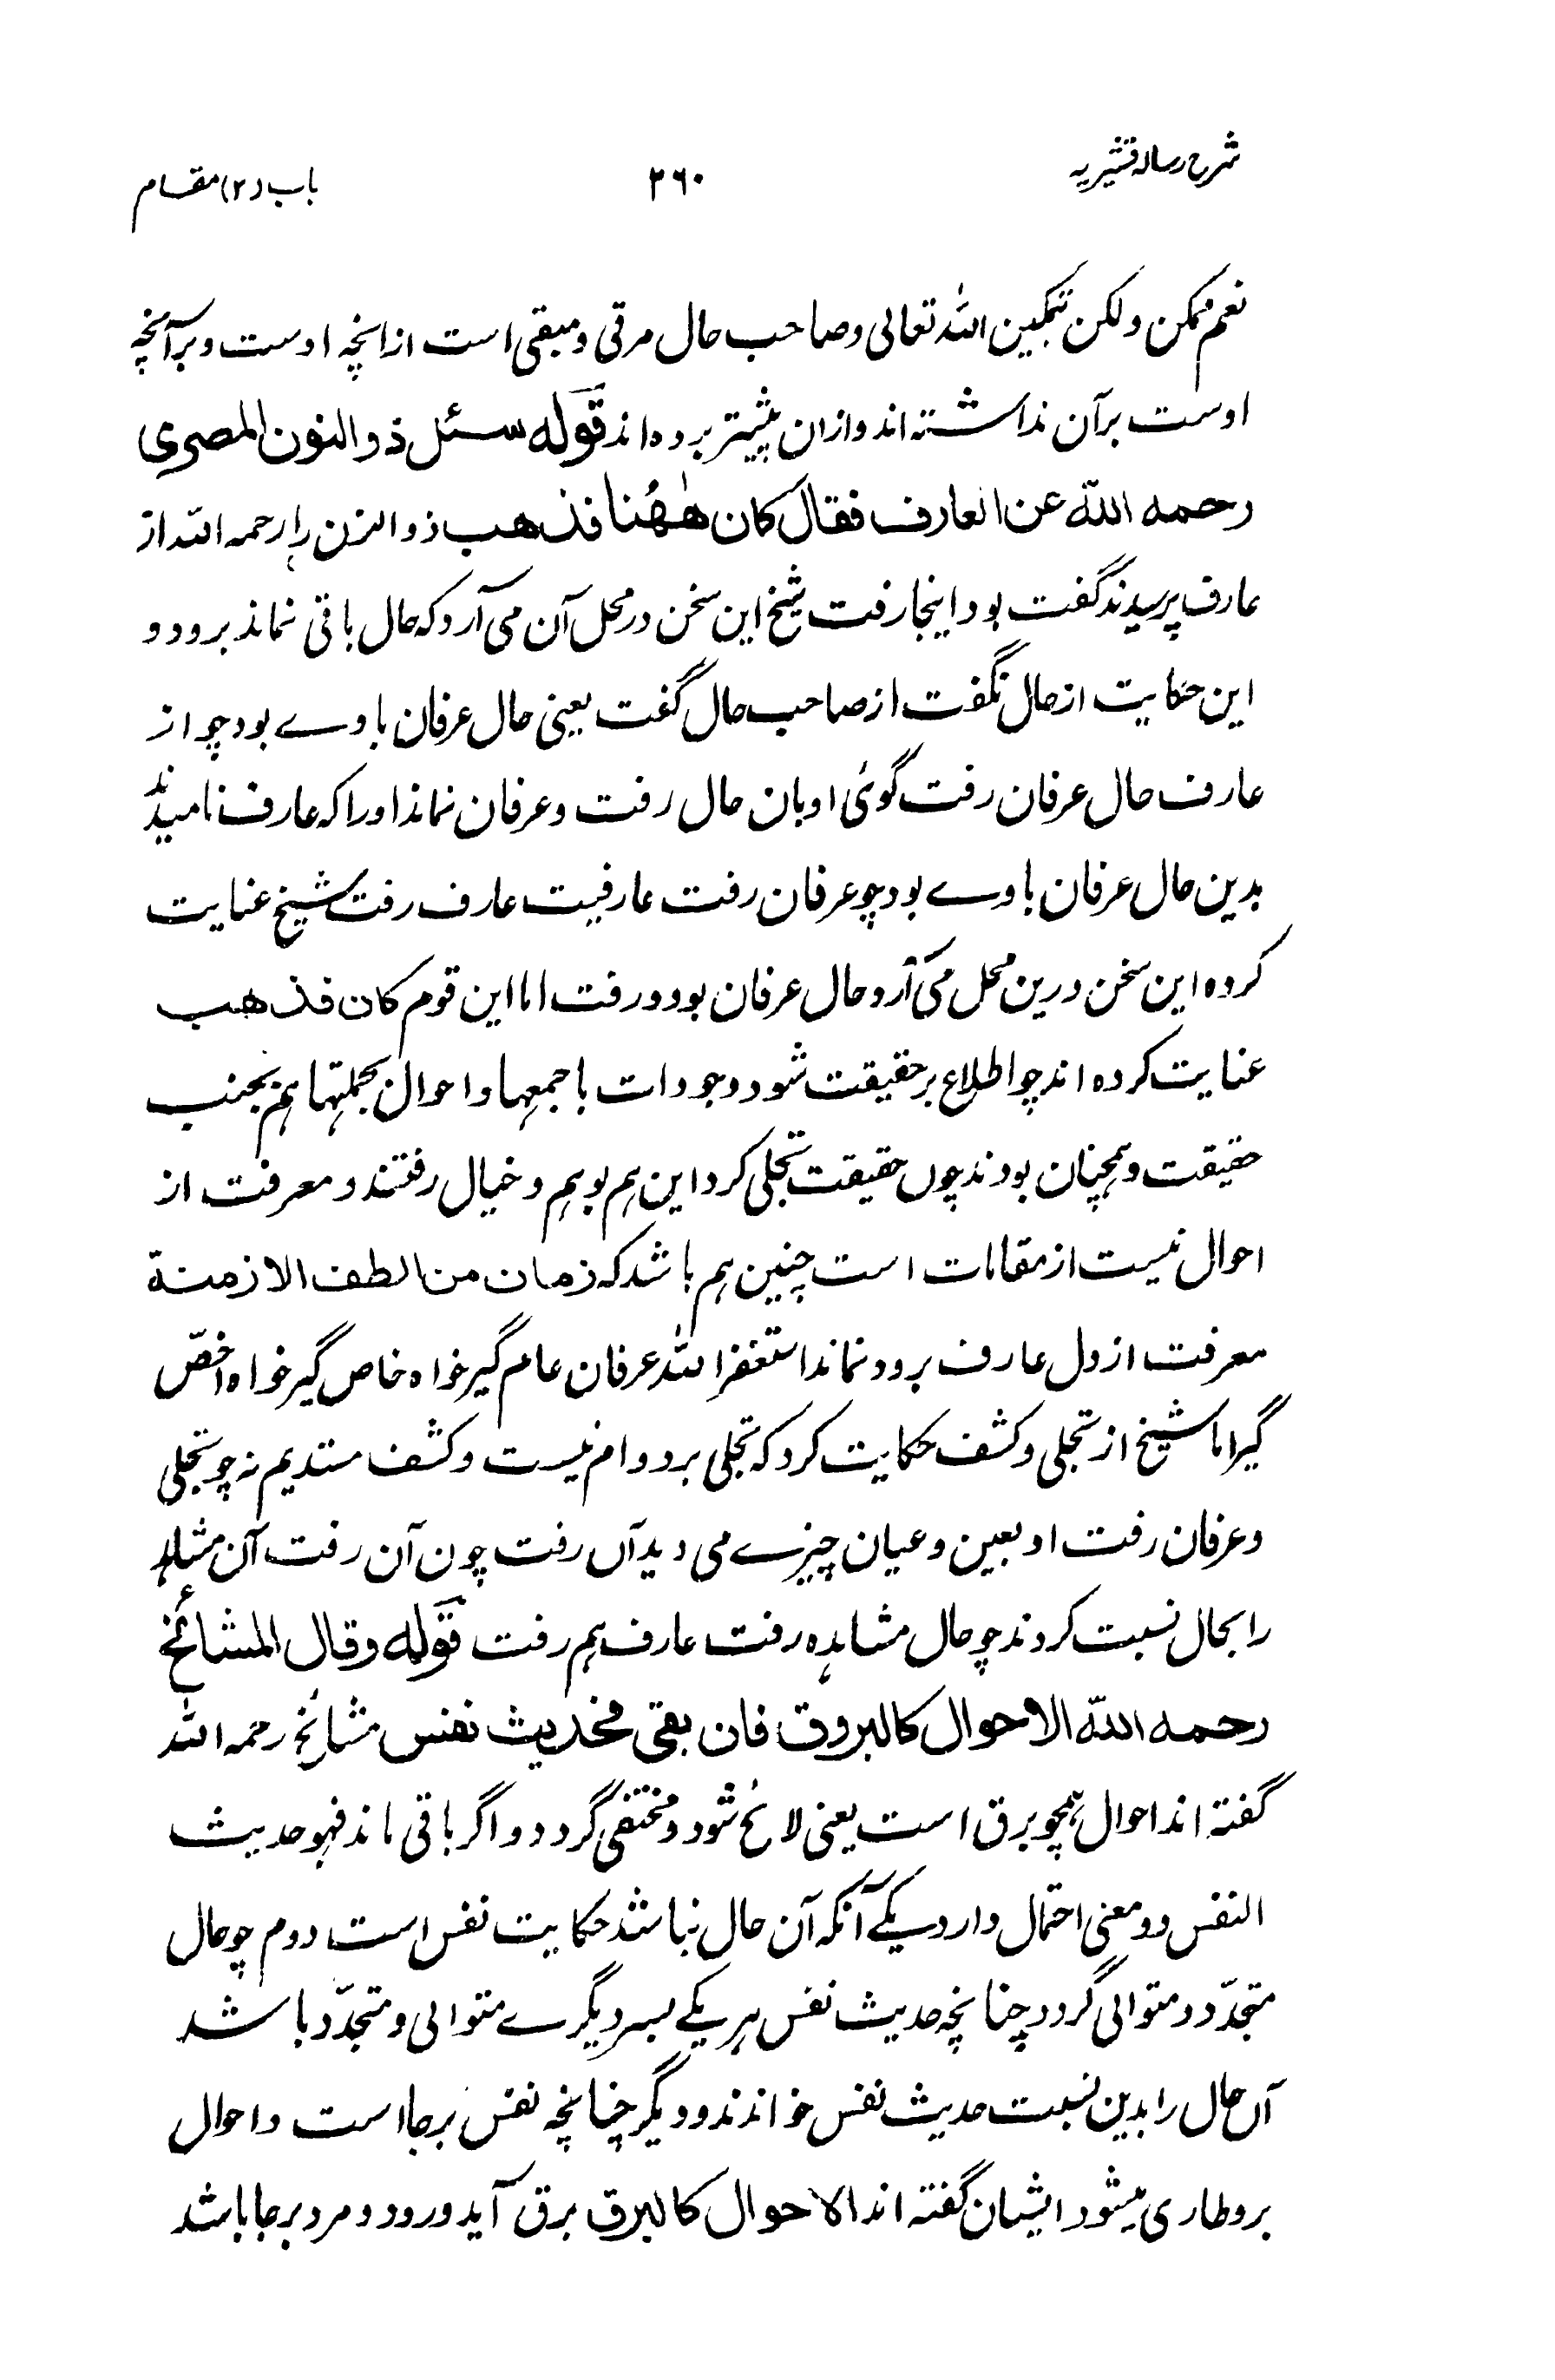 شرح رساله قشیریه ۲۶۰ باب (۲) مقام
نعم ممکن ولکن تمکین الله تعالی و صاحب حال مرقی و مبقی است ازانچه اوست و برآنچه
اوست برآن نداشته اند وازان پیشتر برده اند قوله سئل ذو النون المصری
رحمه الله عن العارف فقال کان هٰهُنا فذهب ذو النون را رحمه الله از
عارف پرسیدند گفت بود اینجا رفت شیخ این سخن در محل آن می آرد که حال باقی نماند برود و
این حکایت از حال نگفت از صاحب حال گفت یعنی حال عرفان با وے بود چو از
عارف حال عرفان رفت گوئی او بان حال رفت و عرفان نماند او را که عارف نامیدند
بدین حال عرفان با وے بود چو عرفان رفت عارفیت عارف رفت شیخ عنایت
کرده این سخن درین محل می آرد حال عرفان بود و رفت اما این قوم کان فذهب
عنایت کرده اند چو اطلاع بر حقیقت شود وجودات باجمعها و احوال بجملتها هم بجنب
حقیقت و همچنان بودند چوں حقیقت تجلی کرد این هم بوهم و خیال رفتند و معرفت از
احوال نیست از مقامات است چنین هم باشد که زمان من الطف الازمنة
معرفت از دل عارف برود نماند استغفر الله عرفان عام گیر خواه خاص گیر خواه اخصّ
گیر اما شیخ از تجلی و کشف حکایت کرد که تجلی بر دوام نیست و کشف مستدیم نه چو تجلی
و عرفان رفت او بعین و عیان چیزے می دید آں رفت چون آن رفت آن مشاهده
را بحال نسبت کردند چو حال مشاهده رفت عارف هم رفت قوله وقال المشائخ
رحمه الله الاحوال کالبروق فان بقی فحدیث نفس مشائخ رحمه الله
گفته اند احوال همچو برق است یعنی لائح شود و مختفی گردد و اگر باقی ماند فهو حدیث
النفس دو معنی احتمال دارد یکے آنکه آن حال نباشد حکایت نفس است دوم چو حال
متجدّد و متوالی گردد چنانچه حدیث نفس هر یکے بسر دیگرے متوالی و متجدّد باشد
آں حال را بدین نسبت حدیث نفس خواندند و دیگر چنانچه نفس برجا است و احوال
بروطاری میشود ایشان گفته اند الاحوال کالبرق برق آید و رود و مرد برجا باشد